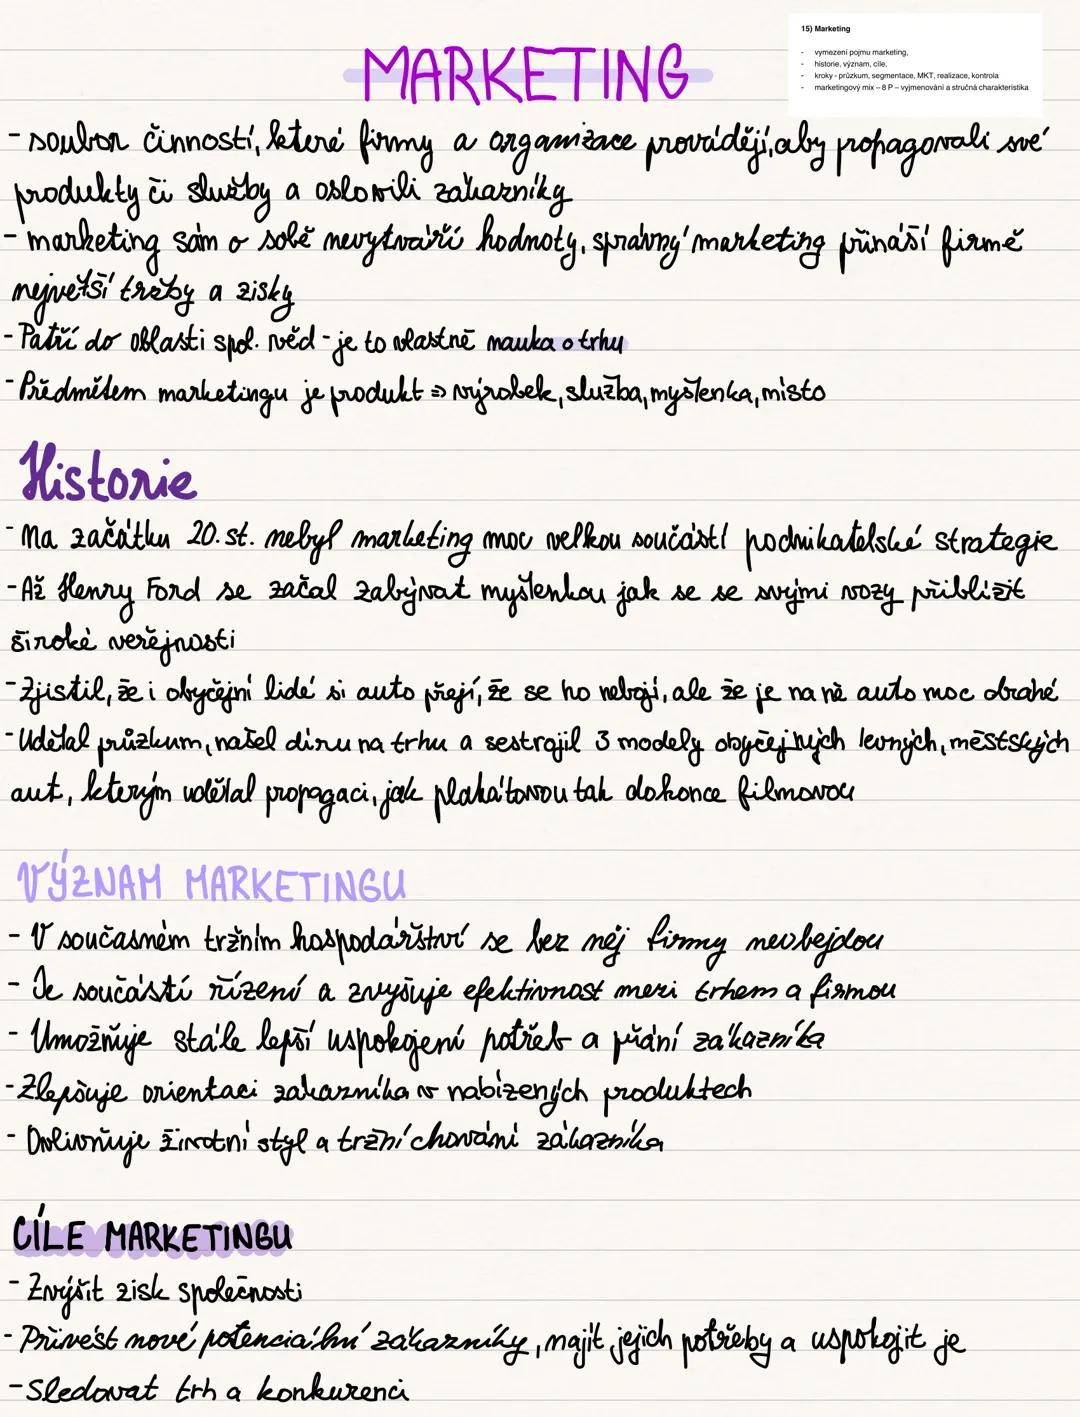 MARKETING
15) Marketing
- vymezení pojmu marketing,
- historie, význam, cíle,
- kroky - průzkum, segmentace, MKT, realizace, kontrola
- marketingový mix – 8 P – vyjmenování a stručná charakteristika
- soubor činností, které firmy a organizace provádějí, aby propagovali své
produkty či služby a oslovili zákazníky
- marketing sám o sobě nevytváří hodnoty, správný marketing přináší firmě
největší tržby a zisky
- Patří do oblasti spol. věd - je to vlastně nauka o trhu
- Předmětem marketingu je produkt => výrobek, služba, myšlenka, místo
Historie
- Na začátku 20. st. nebyl marketing moc velkou součástí podnikatelské strategie
- Až Henry Ford se začal zabývat myšlenkou jak se se svými vozy přiblížit
široké veřejnosti
- Zjistil, že i obyčejní lidé si auto přejí, že se ho nebojí, ale že je na ně auto moc drahé
- Udělal průzkum, našel díru na trhu a sestrojil 3 modely obyčejných levných, městských
aut, kterým udělal propagaci, jak plakátovou tak dokonce filmovou
VÝZNAM MARKETINGU
- V současném tržním hospodářství se bez něj firmy neobejdou
- Je součástí řízení a zvyšuje efektivnost mezi trhem a firmou
- Umožňuje stále lepší uspokojení potřeb a přání zákazníka
- Zlepšuje orientaci zákazníka v nabízených produktech
- Ovlivňuje životní styl a tržní chování zákazníka
CÍLE MARKETINGU
- Zvýšit zisk společnosti
- Přivést nové potenciální zákazníky, najít jejich potřeby a uspokojit je
- Sledovat trh a konkurenci